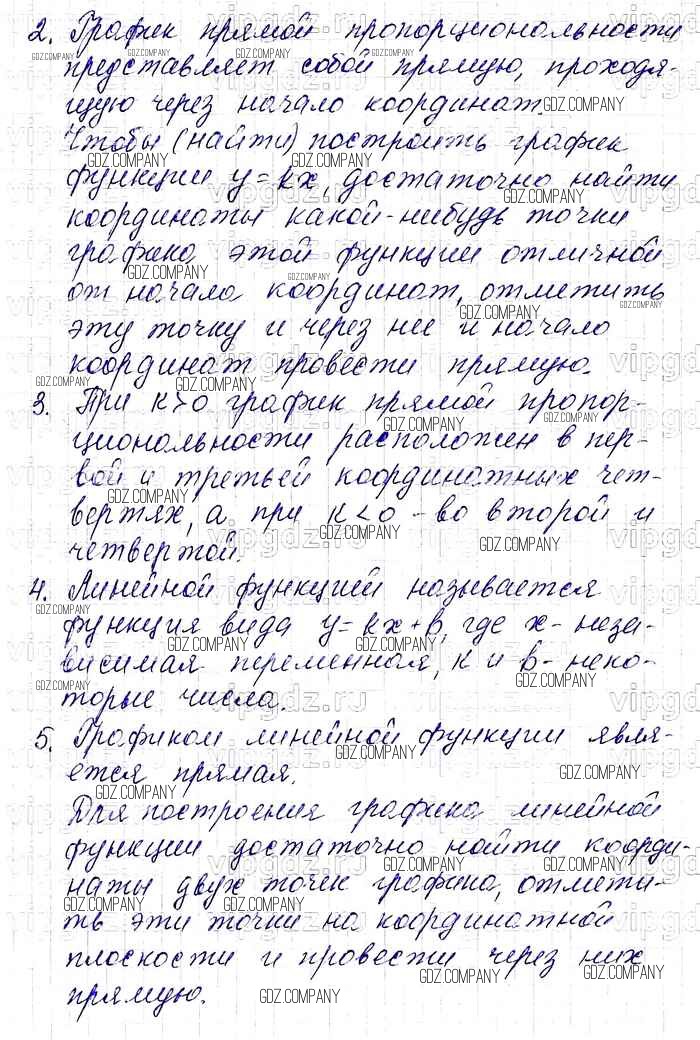 2. График прямой пропорциональности
представляет собой прямую, проходя-
щую через начало координат.
Чтобы (найти) построить график
функции y=kx, достаточно найти
координаты какой-нибудь точки
графика этой функции отличной
от начала координат, отметить
эту точку и через нее и начало
координат провести прямую.
3. При k>0 график прямой пропор-
циональности расположен в пер-
вой и третьей координатных чет-
вертях, а при k<0 - во второй и
четвертой.
4. Линейной функцией называется
функция вида y=kx+b, где x- неза-
висимая переменная, k и b- неко-
торые числа.
5. Графиком линейной функции явля-
ется прямая.
Для построения графика линейной
функции достаточно найти коорди-
наты двух точек графика, отмети-
ть эти точки на координатной
плоскости и провести через них
прямую.
GDZ.COMPANY
vipgdz.ru